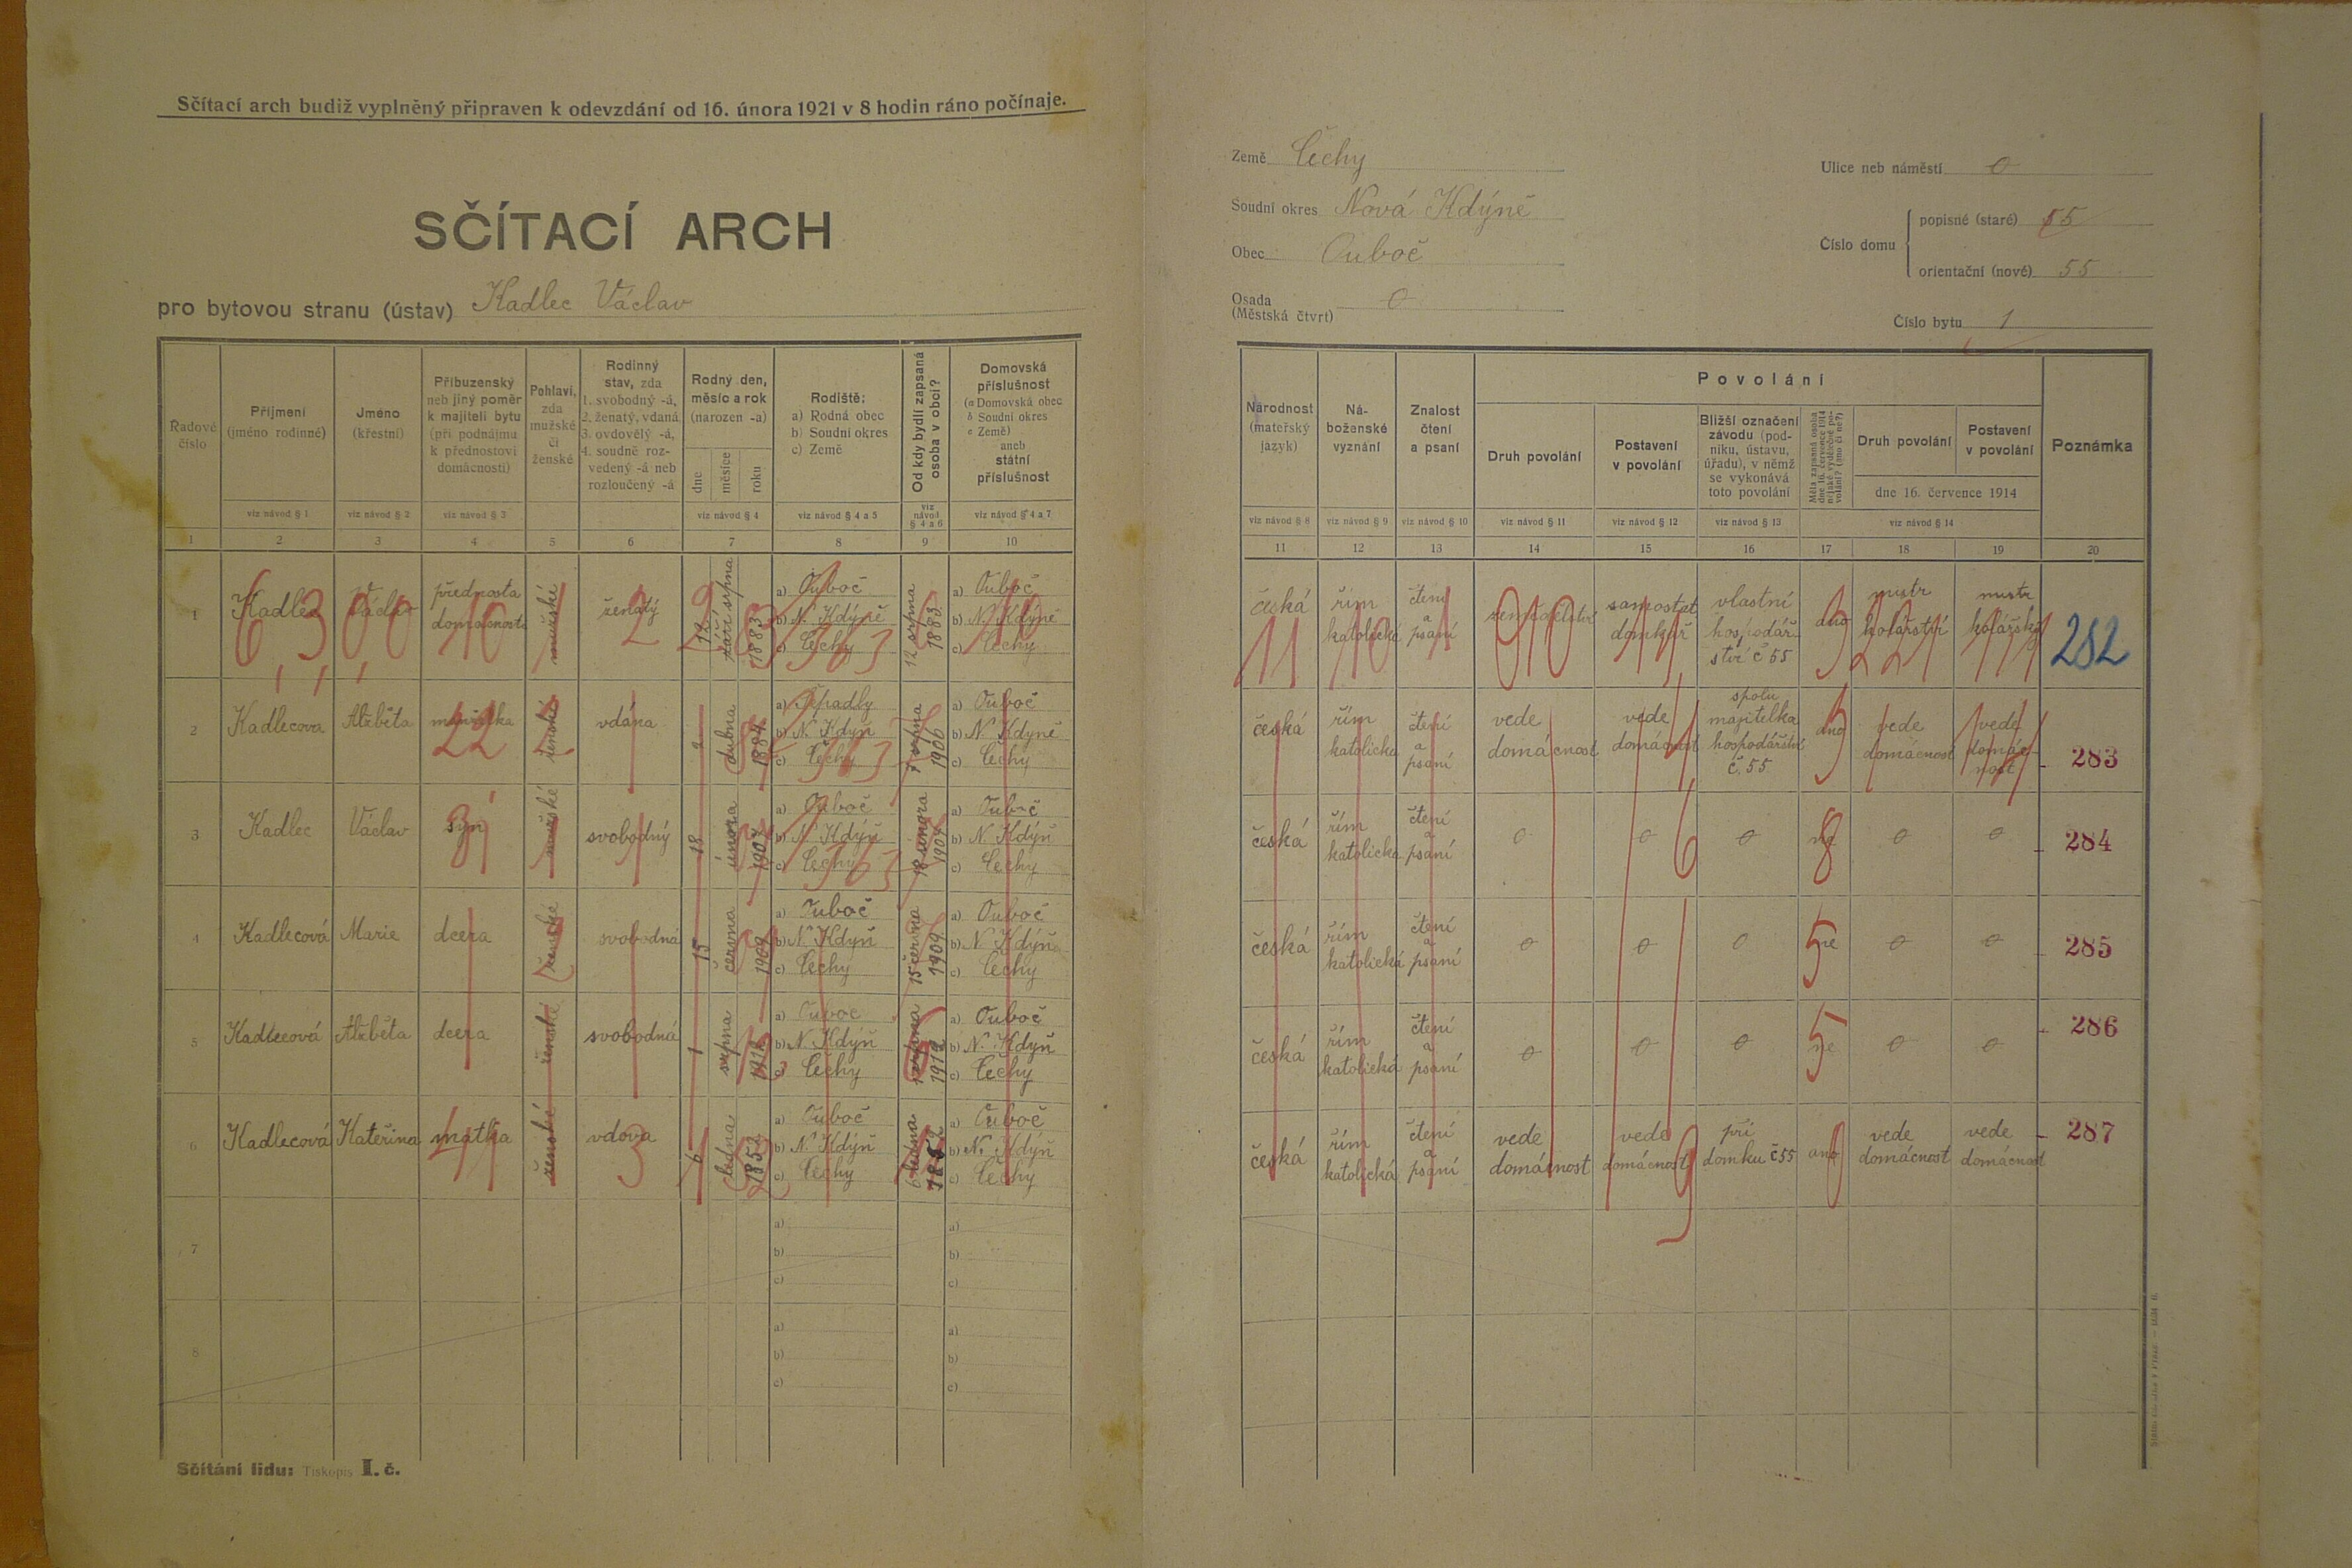 Sčítací arch budiž vyplněný připraven k odevzdání od 16. února 1921 v 8 hodin ráno počínaje.
SČÍTACÍ ARCH
pro bytovou stranu (ústav) Kadlec Václav
Řadové číslo
Příjmení (jméno rodinné)
Jméno (křestní)
Příbuzenský neb jiný poměr k majiteli bytu (při podnájmu k přednostovi domácnosti)
Pohlaví, zda mužské či ženské
Rodinný stav, zda 1. svobodný -á, 2. ženatý, vdaná 3. ovdovělý -á, 4. soudně rozvedený -á neb rozloučený -á
Rodný den, měsíc a rok (narozen -a)
dne měsíce roku
Rodiště: a) Rodná obec b) Soudní okres c) Země
Od kdy bydlí zapsaná osoba v obci?
Domovská příslušnost (a Domovská obec b Soudní okres c Země) aneb státní příslušnost
viz návod § 1 viz návod § 2 viz návod § 3 viz návod § 4 viz návod § 4 a 5 viz návod § 4 a 6 viz návod § 4 a 7
1 2 3 4 5 6 7 8 9 10
1 Kadlec Václav přednosta domácnosti mužské ženatý 12 srpna 1883 a) Ouboč b) N. Kdýně c) Čechy 12 srpna 1883 a) Ouboč b) N. Kdýně c) Čechy
2 Kadlecova Alžběta manželka ženské vdána 2 dubna 1884 a) Úpadly b) N. Kdýň c) Čechy 1906 a) Ouboč b) N. Kdyně c) Čechy
3 Kadlec Václav syn mužské svobodný 18 února 1907 a) Ouboč b) N. Kdýň c) Čechy 18 února 1907 a) Ouboč b) N. Kdýň c) Čechy
4 Kadlecová Marie dcera ženské svobodná 15 června 1909 a) Ouboč b) N. Kdyň c) Čechy 15 června 1909 a) Ouboč b) N. Kdýň c) Čechy
5 Kadlecová Alžběta dcera ženské svobodná 1 srpna 1912 a) Ouboč b) N. Kdýň c) Čechy 1 srpna 1912 a) Ouboč b) N. Kdyň c) Čechy
6 Kadlecová Kateřina matka ženské vdova 6 ledna 1852 a) Ouboč b) N. Kdýň c) Čechy 6 ledna 1852 a) Ouboč b) N. Kdýň c) Čechy
7 a) b) c) a) b) c)
8 a) b) c) a) b) c)
Sčítání lidu: Tiskopis I. č.
Země Čechy
Soudní okres Nová Kdýně
Obec Ouboč
Osada (Městská čtvrt) 0
Ulice neb náměstí 0
Číslo domu popisné (staré) 55
orientační (nové) 55
Číslo bytu 1
Národnost (mateřský jazyk)
Náboženské vyznání
Znalost čtení a psaní
Povolání
Druh povolání
Postavení v povolání
Bližší označení závodu (podniku, ústavu, úřadu), v němž se vykonává toto povolání
Měla zapsaná osoba dne 16. července 1914 nějaké výdělečné povolání? (ano či ne?)
Druh povolání
Postavení v povolání
dne 16. července 1914
Poznámka
viz návod § 8 viz návod § 9 viz návod § 10 viz návod § 11 viz návod § 12 viz návod § 13 viz návod § 14
11 12 13 14 15 16 17 18 19 20
česká řím katolická čtení a psaní zemědělství samostat domkař vlastní hospodářství č 55 ano mistr kolářství mistr kolářský 282
česká řím katolicka čtení a psaní vede domácnost vede domácnost spolu majitelka hospodářství č. 55 ano vede domácnost vede domácnost 283
česká řím katolicka čtení a psaní 0 0 0 ne 0 0 284
česká řím katolická čtení a psaní 0 0 0 ne 0 0 285
česká řím katolická čtení a psaní 0 0 0 ne 0 0 286
česká řím katolická čtení a psaní vede domácnost vede domácnost při domku č 55 ano vede domácnost vede domácnost 287